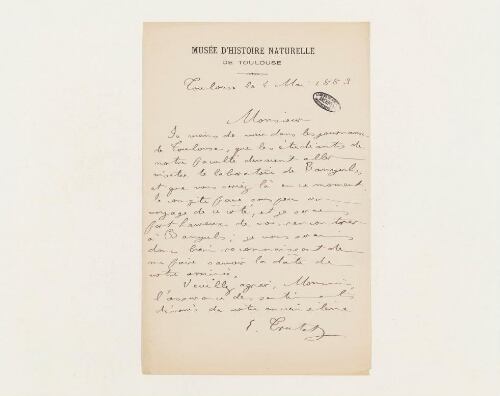 MUSÉE D'HISTOIRE NATURELLE
DE TOULOUSE
Toulouse le Mai 1883
Monsieur
Je viens de voir dans les journaux
de Toulouse, que les étudiants de
notre faculté devaient aller
visiter le laboratoire de Banyuls,
et que vous seriez là en ce moment.
Je compte faire sous peu un
voyage de ce côté, et je serais
fort heureux de vous rencontrer
à Banyuls; je vous serais
donc bien reconnaissant de
me faire savoir la date de
votre arrivée.
Veuillez agréer, Monsieur,
l'assurance des sentiments
dévoués de votre ancien élève
E. Trutat